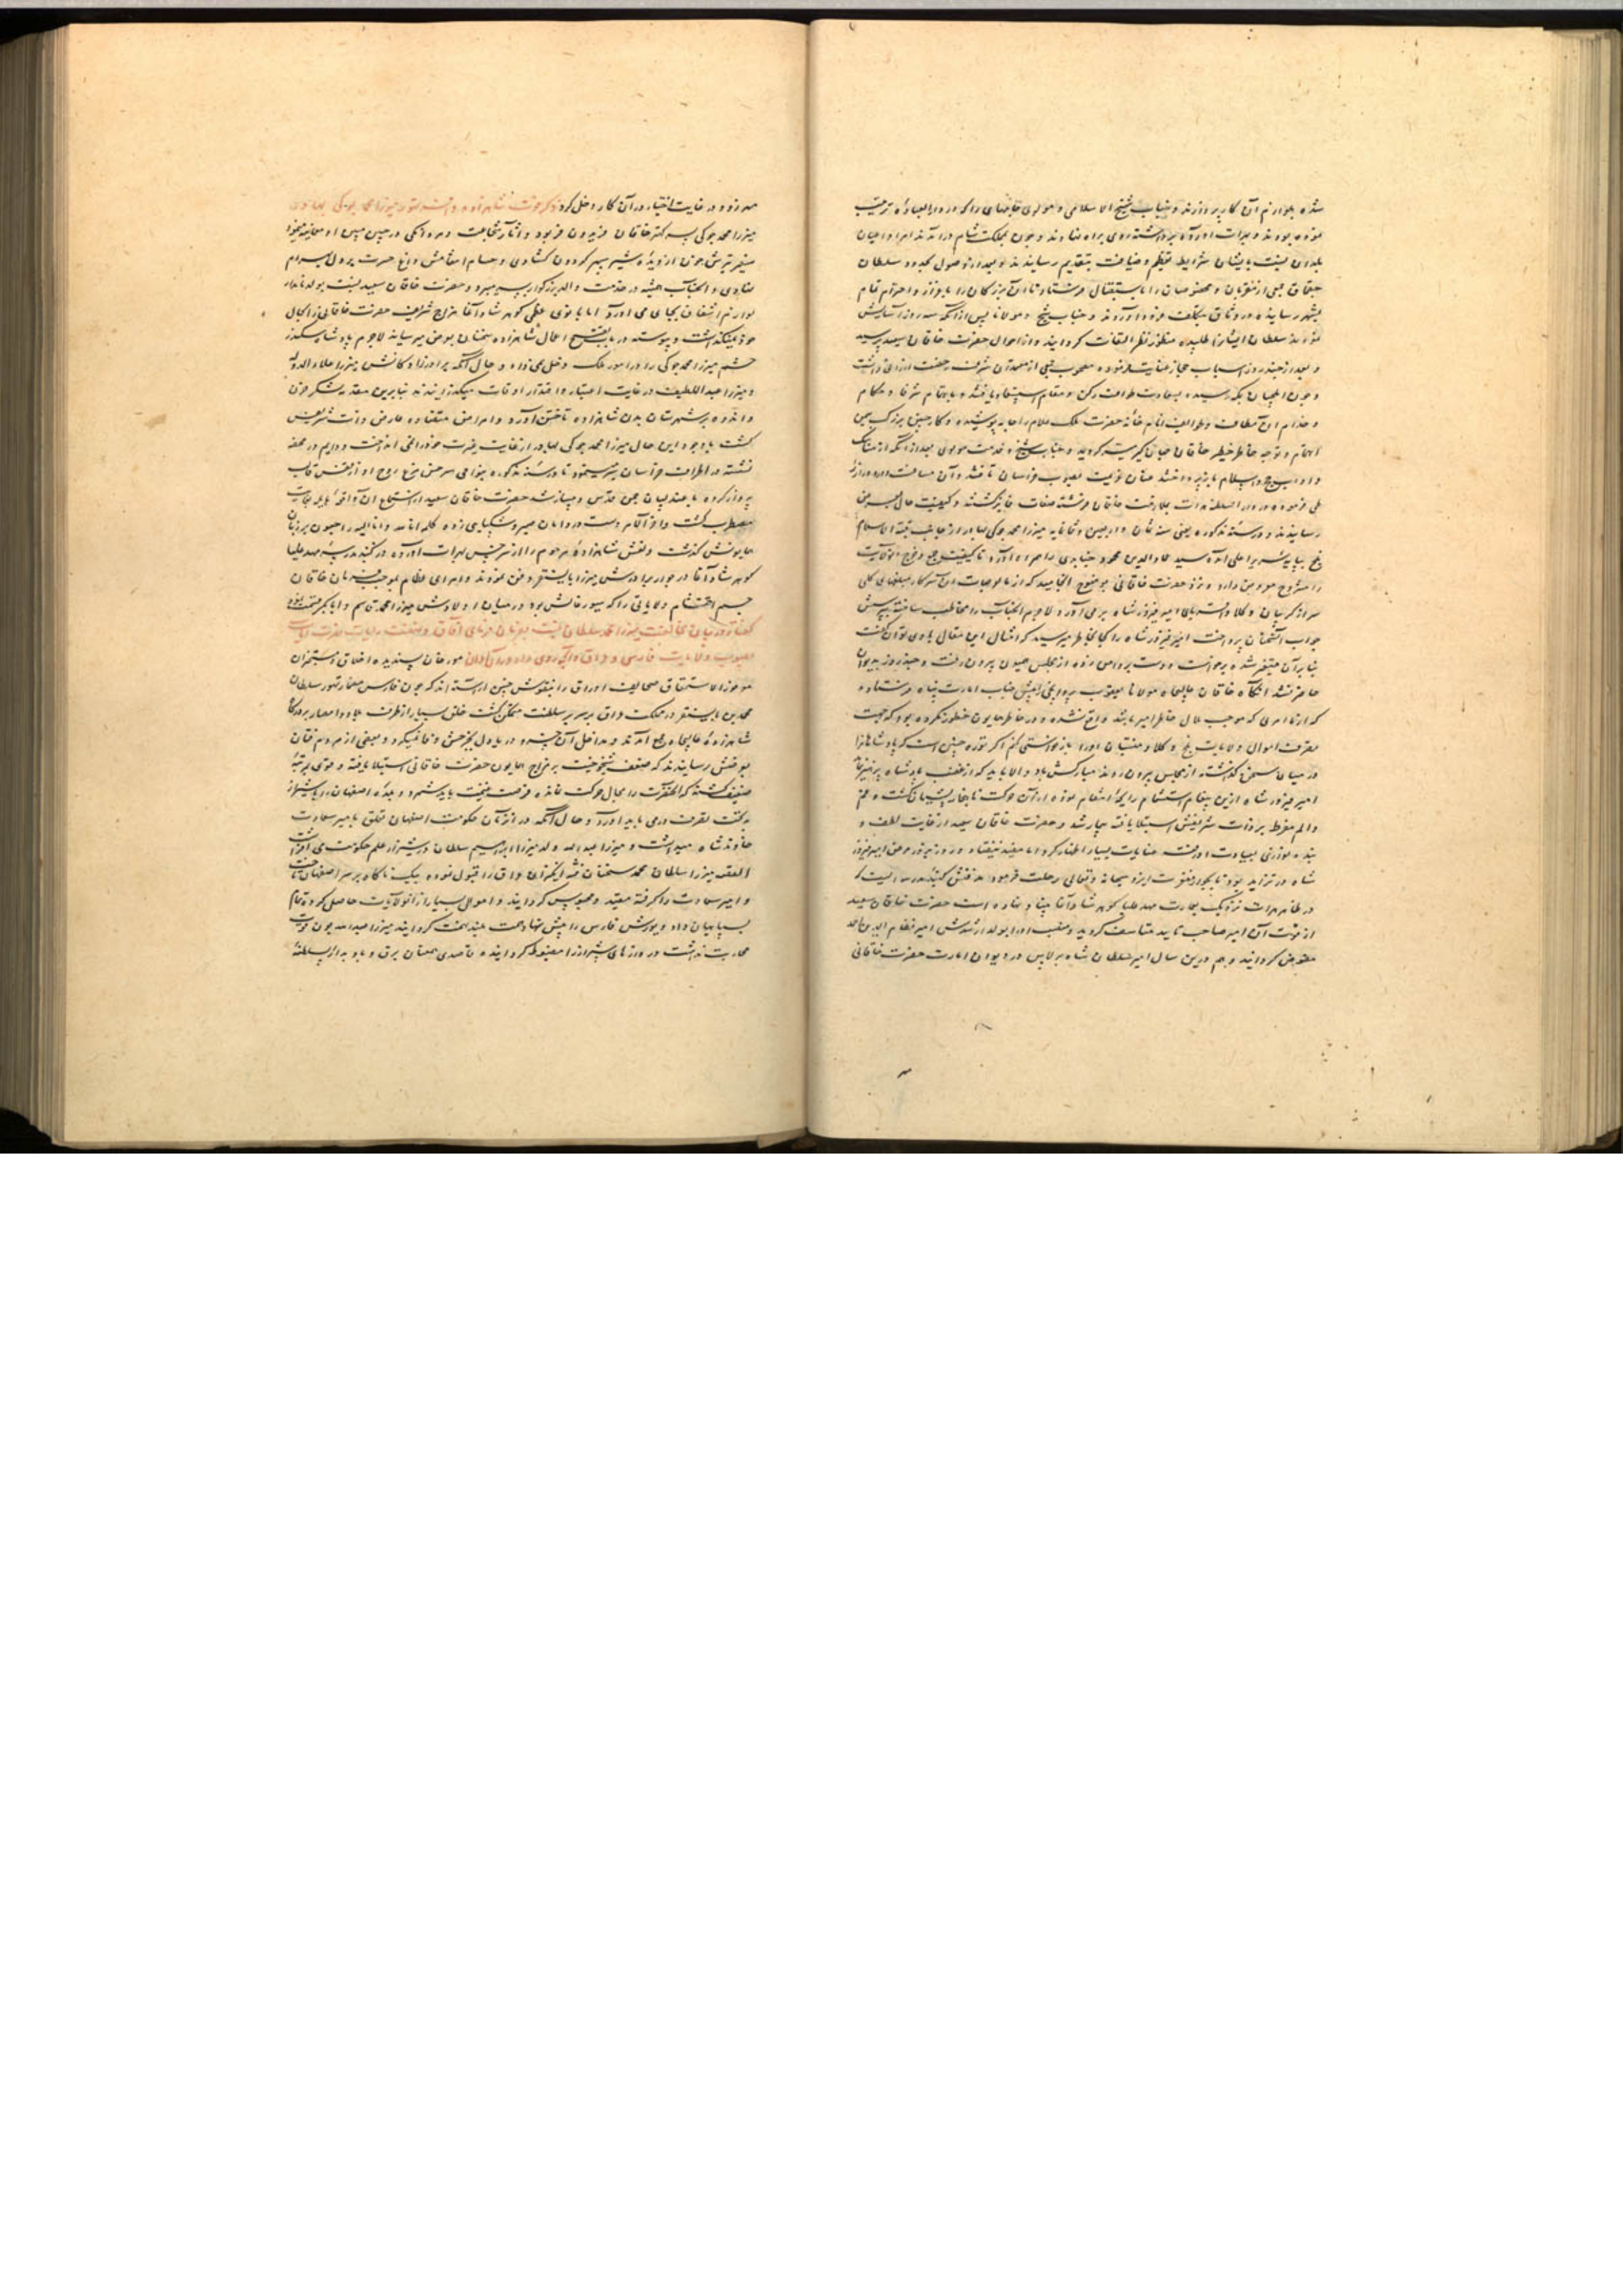 شده بلوازم آن کار پردازند و جناب شیخ الاسلامی و مولوی جامهای را که در دارالعباده ترتیب
نموده بودند و بهرات آورده برداشته روی براه نهادند و چون بمملکت شام درآمدند امرا و اعیان
بلدان نسبت بایشان شرایط تعظیم و ضیافت بتقدیم رسانیدند و بعد از وصول بحدود سلطان
جقماق جمعی از مقربان و مخصوصان را باستقبال فرستاد تا آن بزرگان را باعزاز و احترام تمام
بشهر رسانیده در وثاق بتکلف فرود آوردند و جناب شیخ و مولانا پس از آنکه سه روز آسایش
نمودند سلطان ایشانرا طلبیده منظور نظر التفات گردانید و از احوال حضرت خاقان سعید پرسید
و بعد از چند روز اسباب حجاز عنایت فرموده مصحوب جمعی از معتمدان شرف رخصت ارزانی داشت
و چون ایلچیان بمکه رسیدند بسعادت طواف رکن و مقام استسعاد یافتند و باهتمام شرفا و حکام
و خدام آن مطاف طوایف انام خانه حضرت ملک علام را جامه پوشیده و کار چنین بزرگ بیمن
اهتمام و توجه خاطر خطیر خاقان جهانگیر میسر گردید و جناب شیخ و خدمت مولوی بعد از آنکه از مناسک
و آداب حج و اسلام باز پرداختند عنان عزیمت بصوب خراسان تافتند و آن مسافت دور و دراز را
طی فرموده در دار السلطنه هرات بملازمت خاقان فرشته صفات فایز گشتند و کیفیت حال بعرض
رسانیدند و در سنه مذکوره یعنی سنه ثمان و اربعین و ثمانمایه میرزا محمد جوکی بهادر از جانب قبة الاسلام
بلخ بپایه سریر اعلی آمده سید عماد الدین محمود جنابدی را همراه آورد تا کیفیت جمع و خرج آنولایت
را مشروح معروض دارد و نزد حضرت خاقانی بوضوح انجامید که از مالوجهات آن سرکار مبلغهای کلی
سر از گریبان وکلا و گماشتهای امیر فیروزشاه بر می آورد لاجرم آنجناب را مخاطب ساخته بپرسش
جواب آن سخنان پرداخت امیر فیروزشاه را گمان بخاطر نمیرسید که امثال این مقال با وی توان گفت
بنابرآن متغیر شده برخواست و دست بر دامن زده از مجلس همیون بیرون رفت و چند روز بدیوان
حاضر نشد آنگاه خاقان عالیجاه مولانا یعقوب پروانچی را پیش جناب امارت پناه فرستاد
که از ما امری که موجب ملال خاطر امیر باشد واقع نشده و در خاطر همایون خطور نکرده بود که جهت
تصرف اموال ولایت بلخ وکلا و منتسبان او را بازخواستی کنم اگر توره چنین است که پادشاهانرا
در میان سخن گذاشته از مجلس بیرون روند مبارکش باد و الا باید که از غضب پادشاه پرهیز نماید
امیر فیروزشاه ازین پیغام استشمام رایحه انتقام نموده از آن حرکت ناهنجار پشیمان گشت و غم
و الم مفرط بر ذات شریفش استیلا یافته بیمار شد و حضرت خاقان سعید از غایت لطف و
بنده نوازی بعیادت او رفت عنایات بسیار اظهار کرد اما مفید نیفتاد و روز بروز مرض امیر فیروز
شاه در تزاید بود تا بجوار مغفرت ایزد سبحانه و تعالی رحلت فرمود مدفنش گنبد مدرسه ایست که
در ظاهر هرات نزدیک بعمارت مهد علیا گوهرشاد آغا بنا نهاده است حضرت خاقان سعید
از فوت آن امیر صاحب تایید متاسف گردید و منصب او را بولد ارشدش امیر نظام الدین احمد
مفوض گردانید و هم درین سال امیر سلطان شاه برلاس در دیوان امارت حضرت خاقانی
مهر زده و در غایت اختیار در آن کار دخل کرد ذکر فوت شاهزاده میرزا محمد جوکی بهادر
میرزا محمد جوکی پسر کهتر خاقان فریدون فر بود و آثار شجاعت و مردانگی
و آنجناب همیشه در خدمت والد بزرگوار بسر میبرد و حضرت خاقان سعید نسبت بولد نامدار
لوازم اشفاق بجای می آورد اما بانوی عظمی گوهرشاد آغا مزاج شریف حضرت خاقانی را بحال
خود نمیگذاشت و پیوسته در باب تقبیح اعمال شاهزاده سخنان بعرض میرسانید لاجرم پادشاه
حشم میرزا محمد جوکی را در امور ملک دخل نمی داد و حال آنکه برادرزادگانش میرزا علاء الدوله
و میرزا عبد اللطیف در غایت اعتبار و اقتدار اوقات میگذرانیدند بنابرین مقدمه لشکر حزن
و اندوه بر شهرستان بدن شاهزاده تاختن آورد و امراض متضاده عارض ذات شریفش
گشت باوجود این حال میرزا محمد جوکی بهادر از غایت غیرت خود را نمی انداخت و دایم در محفه
نشسته در اطراف خراسان سیر مینمود تا در سنه مذکوره بنواحی سرخس مرغ روح او از قفس قالب
پرواز کرده با عندلیبان چمن قدس دمساز شد حضرت خاقان سعید از استماع آن واقعه هایله بغایت
مضطرب گشت و آخر الامر دست در دامان صبر و شکیبایی زده کلمه انا لله و انا الیه راجعون بر زبان
همایونش گذشت و نعش شاهزاده مرحوم را از سرخس بهرات آورده در گنبد مدرسه مهد علیا
گوهرشاد آغا در جوار برادرش میرزا بایسنقر دفن نمودند و امرای عظام بموجب فرمان خاقان
جم احتشام ولایاتی را که سیورغالش بود در میان اولادش میرزا محمد قاسم و ابابکر قسمت نمود
گفتار در بیان مخالفت میرزا محمد سلطان نسبت بفرمان فرمای آفاق و نهضت رایات نصرت آیات
بصوب ولایت فارس و عراق و آنچه روی داد در آن اوان مورخان پسندیده اخلاق و مستخبران
موفور الاستحقاق صحایف اوراق را بنقوش چنین آراسته اند که چون فارس مضمار تهور سلطان
محمد بن بایسنقر در مملکت عراق بر سریر سلطنت متمکن گشت خلق بسیار از اطراف بلاد و امصار بدرگاه
شاهزاده عالیجاه جمع آمدند و مداخل آن خسرو دریادل بخرجش وفا نمیکرد و بعضی از مردم فتان
بعرضش رسانیدند که ضعف شیخوخیت بر مزاج همایون حضرت خاقانی استیلا یافته و قوی بمرتبه
ضعیف گشته که آنحضرت را مجال حرکت نمانده فرصت غنیمت باید شمرد و بلده اصفهان و دیار شیراز
بتحت تصرف درمی باید آورد و حال آنکه در آنزمان حکومت اصفهان تعلق بامیر سعادت
خاوندشاه میداشت و میرزا عبد الله ولد میرزا ابراهیم سلطان در شیراز علم حکومت می افراشت
القصه میرزا سلطان محمد سخنان فتنه انگیز اهل عراق را قبول نموده بیک ناگاه بر سر اصفهان تاخت
و امیر سعادت را گرفته مقید و محبوس گردانید و اموال بسیار از آنولایت حاصل کرده تمام
بسپاهیان داد و یورش فارس را پیش نهاد همت بلند نهمت گردانید میرزا عبد الله چون قوت
محاربت نداشت دروازهای شیراز را مضبوط گردانیده قاصدی بسان برق و باد بدار السلطنه